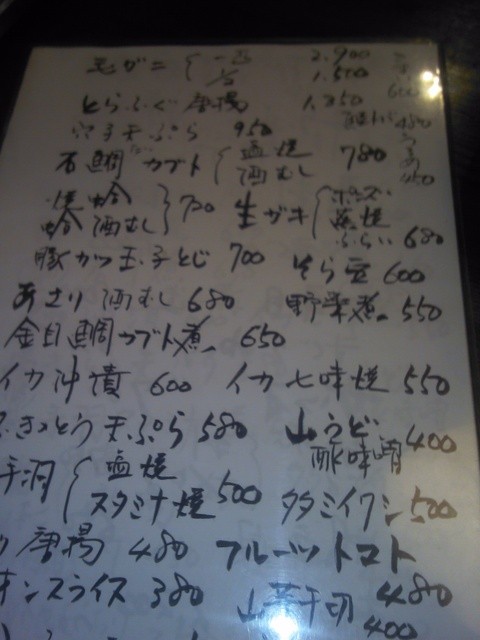 毛ガニ 一匹 2.900
1/2 1.500
とらふぐ唐揚 1.350
穴子天ぷら 950
石鯛カブト 塩焼 酒むし 780
焼蛤
蛤酒むし 700
生ガキ ポン酢 フライ 680
豚カツ玉子とじ 700
そら豆 600
あさり酒むし 680
野菜煮 550
金目鯛カブト煮 650
イカ沖漬 600
イカ七味焼 550
ふきのとう天ぷら 580
山うど 酢味噌 400
塩焼
スタミナ焼 500
タタミイワシ 500
唐揚 480
フルーツトマト 480
オンスライス 380
山芋千切 400